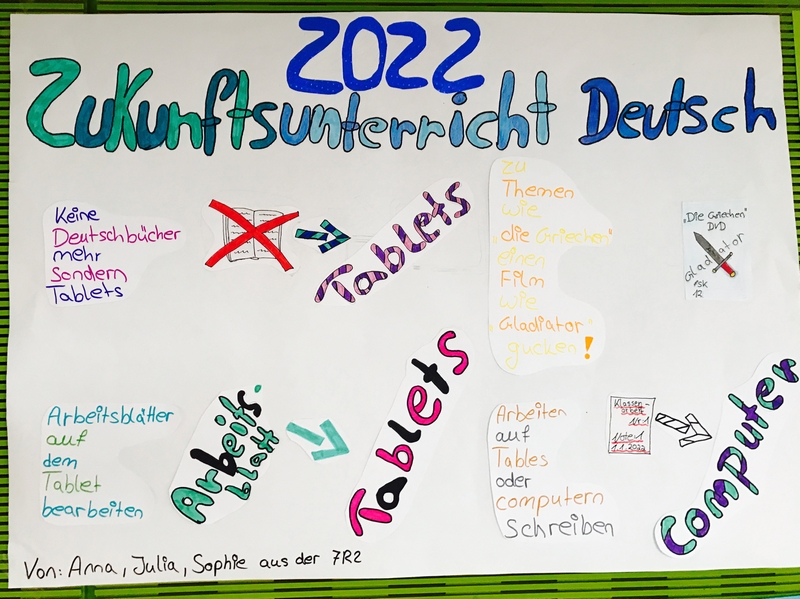 2022
Zukunftsunterricht Deutsch
Keine
Deutschbücher
mehr
Sondern
Tablets
Tablets
zu
Themen
wie
"die Griechen"
einen
Film
wie
"Gladiator"
gucken!
"Die Griechen"
DVD
Gladiator
FSK
12
Arbeitsblätter
auf
dem
Tablet
bearbeiten
Arbeits-
blatt
Tablets
Arbeiten
auf
Tables
oder
computern
Schreiben
Klassen-
arbeit
Nr.1
Note 1
1.1.2022
Computer
Von: Anna, Julia, Sophie aus der 7R2